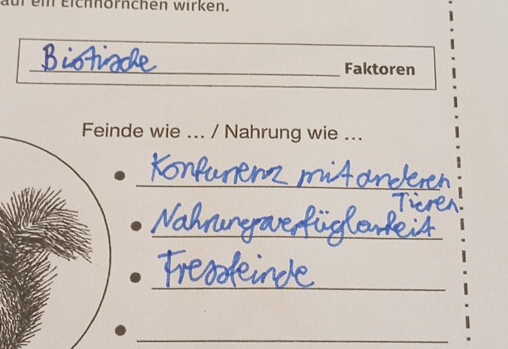 auf ein Eichhörnchen wirken.
Biotische Faktoren
Feinde wie ... / Nahrung wie ...
• Konkurrenz mit anderen
Tieren
• Nahrungsverfügbarkeit
• Fressfeinde
•